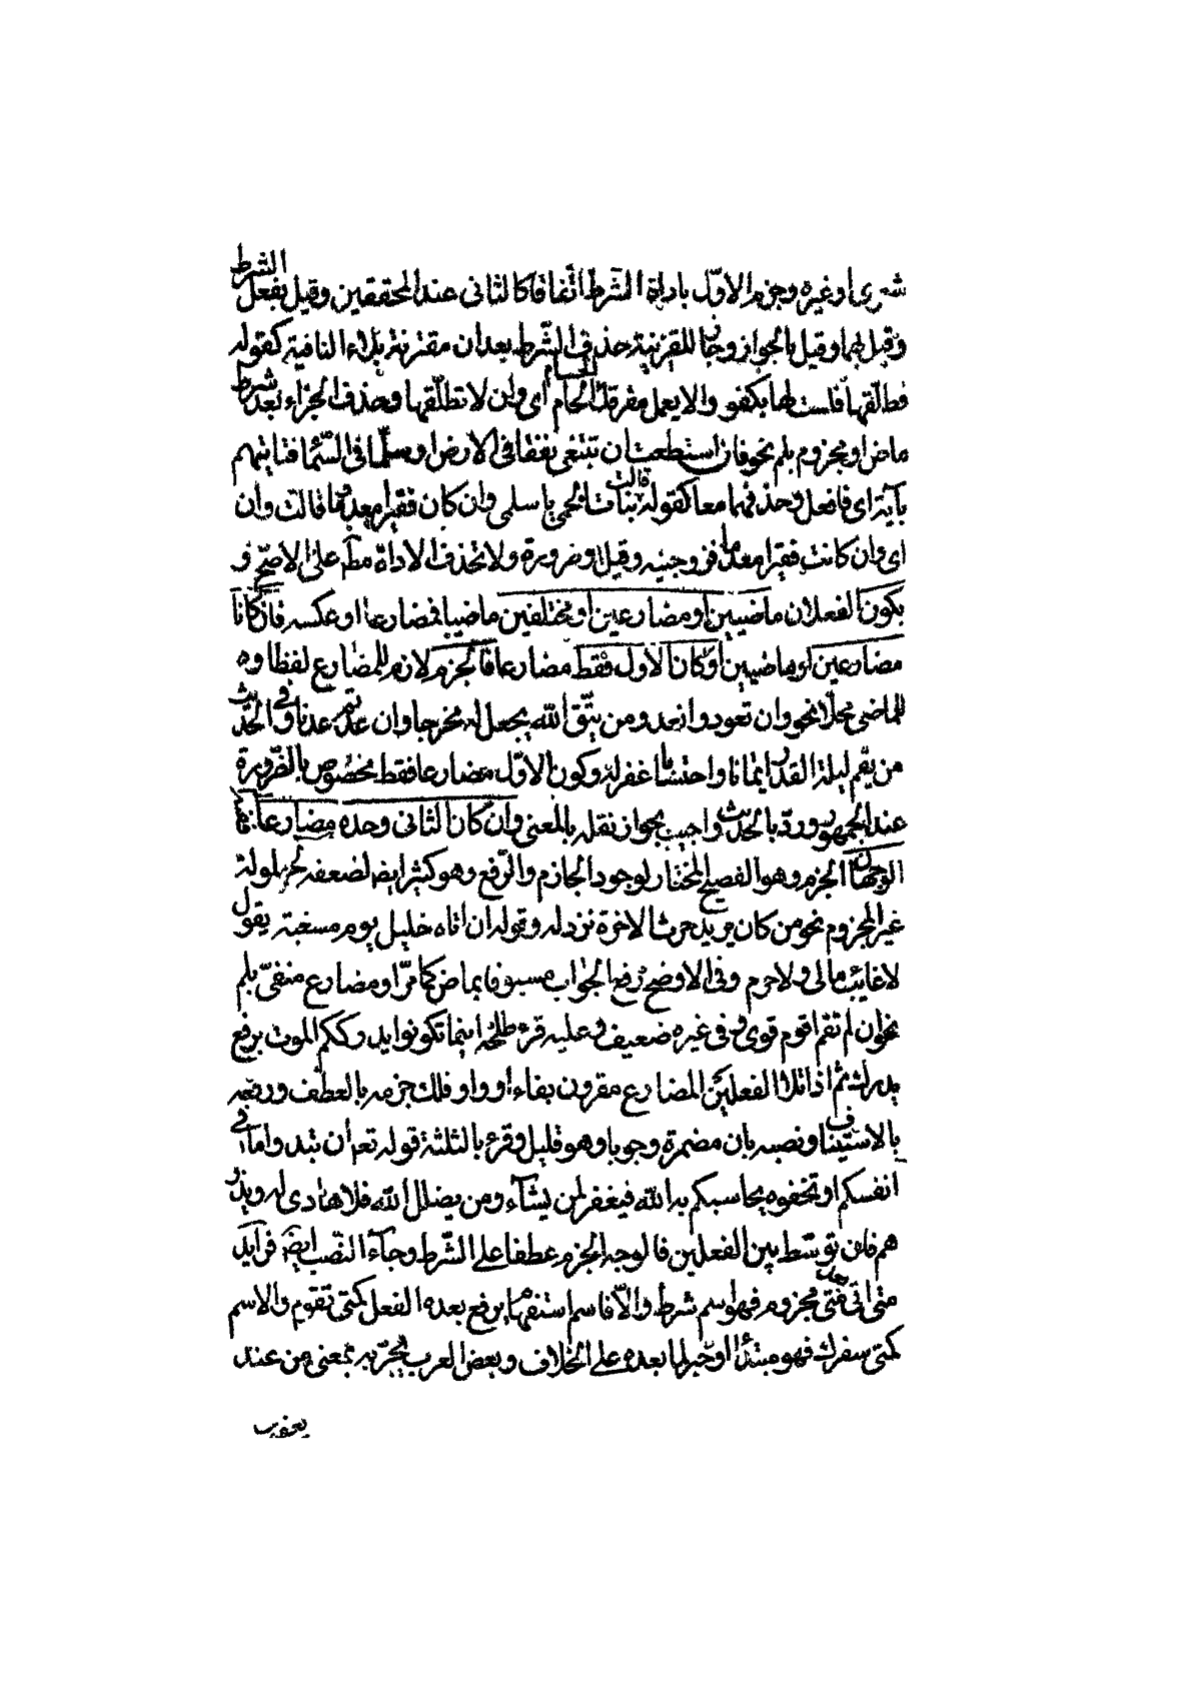 شرى او غيره وجزم الاوّل باداة الشرط اتّفاقا كالثانى عند المحققين وقيل بفعل الشرط
وقيل بهما وقيل بالجواز وجاز للقرينة حذف الشرط بعد ان مقترنة بلاء النافية كقوله
فطلّقها فلست لها بكفو والا يعل مفرقك الحسام اى وان لا تطلّقها وحذف الجزاء بعد شرط
ماض او مجزوم بلم نحو فان استطعت ان تبتغى نفقا فى الارض او سلّما فى السّماء فتاتيهم
بآية اى فافعل وحذفهما معا كقوله قالت بنات الحى يا سلمى وان كان فقيرا معدما قالت وان
اى وان كانت فقيرا معدما فزوجينيه وقيل وضرورة ولا تحذف الاداة مطم على الاصحّ و
يكون الفعلان ماضيين او مضارعين او مختلفين ماضيا فمضارعا او عكسه فان كانا
مضارعين او ماضيين او كان الاول فقط مضارعا فالجزم لازم للمضارع لفظا وه
للماضى محلّا نحو وان تعودوا نعد ومن يتّق الله يجعل له مخرجا وان عدتم عدنا وفى الحديث
من يقم ليلة القدر ايمانا واحتسابا غفر له وكون الاوّل مضارعا فقط مخصوص بالضّرورة
عند الجمهور وردّ بالحديث واجيب بجواز نقله بالمعنى وان كان الثانى وحده مضارعا ففيه
الوجهان الجزم وهو الفصيح المختار لوجود الجازم والرّفع وهو كثير ايضا لضعفه لحيلولة
غير المجزوم نحو من كان يريد حرث الاخرة نزد له وقوله ان اتاه خليل يوم مسغبة يقول
لا غائب مالى ولا حرم وفى الاوضح رفع الجواب مسبوقا بماض كما مرّ او مضارع منفىّ بلم
نحو ان لم تقم اقوم قوى وفى غيره ضعيف وعليه قرء طلحة اينما تكونوا يدرككم الموت برفع
يدرك ثم اذا تلا الفعلين المضارع مقرون بفاء أو واو فلك جزمه بالعطف ورفعه
بالاستيناف ونصبه بان مضمرة وجوبا وهو قليل وقرء بالثلثة قوله تع أن تبدوا ما فى
انفسكم او تخفوه يحاسبكم به الله فيغفر لمن يشآء ومن يضلل الله فلا هادى له ويذر
هم فان توسّط بين الفعلين فالوجه الجزم عطفا على الشّرط وجآء النّصب ايضا فرايد
متى اتى بعد متى مجزوم فهو اسم شرط والّا فاسم استفهام يرفع بعده الفعل كمتى تقوم والاسم
كمتى سفرك فهو مبتدأ او خبر لما بعده على الخلاف وبعض العرب يجرّ به بمعنى من عند
يعقوب